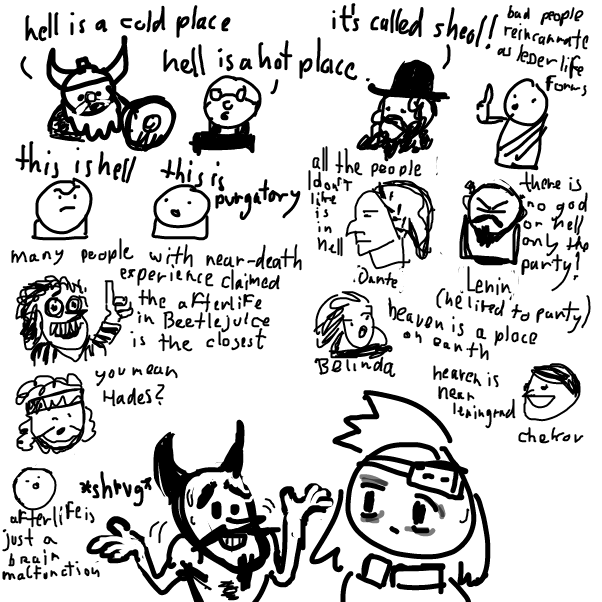 hell is a cold place
hell is a hot place.
it's called sheol!
bad people
reincarnate
as lesser life
forms
this is hell
this is
purgatory
all the people
I don't
like
is
in
hell
Dante
there is
no god
or hell
only the
party!
Lenin
(he liked to party)
many people with near-death
experience claimed
the afterlife
in Beetlejuice
is the closest
Belinda
heaven is a place
on earth
you mean
Hades?
heaven is
near
leningrad
chekov
afterlife is
just a
brain
malfunction
*shrug*